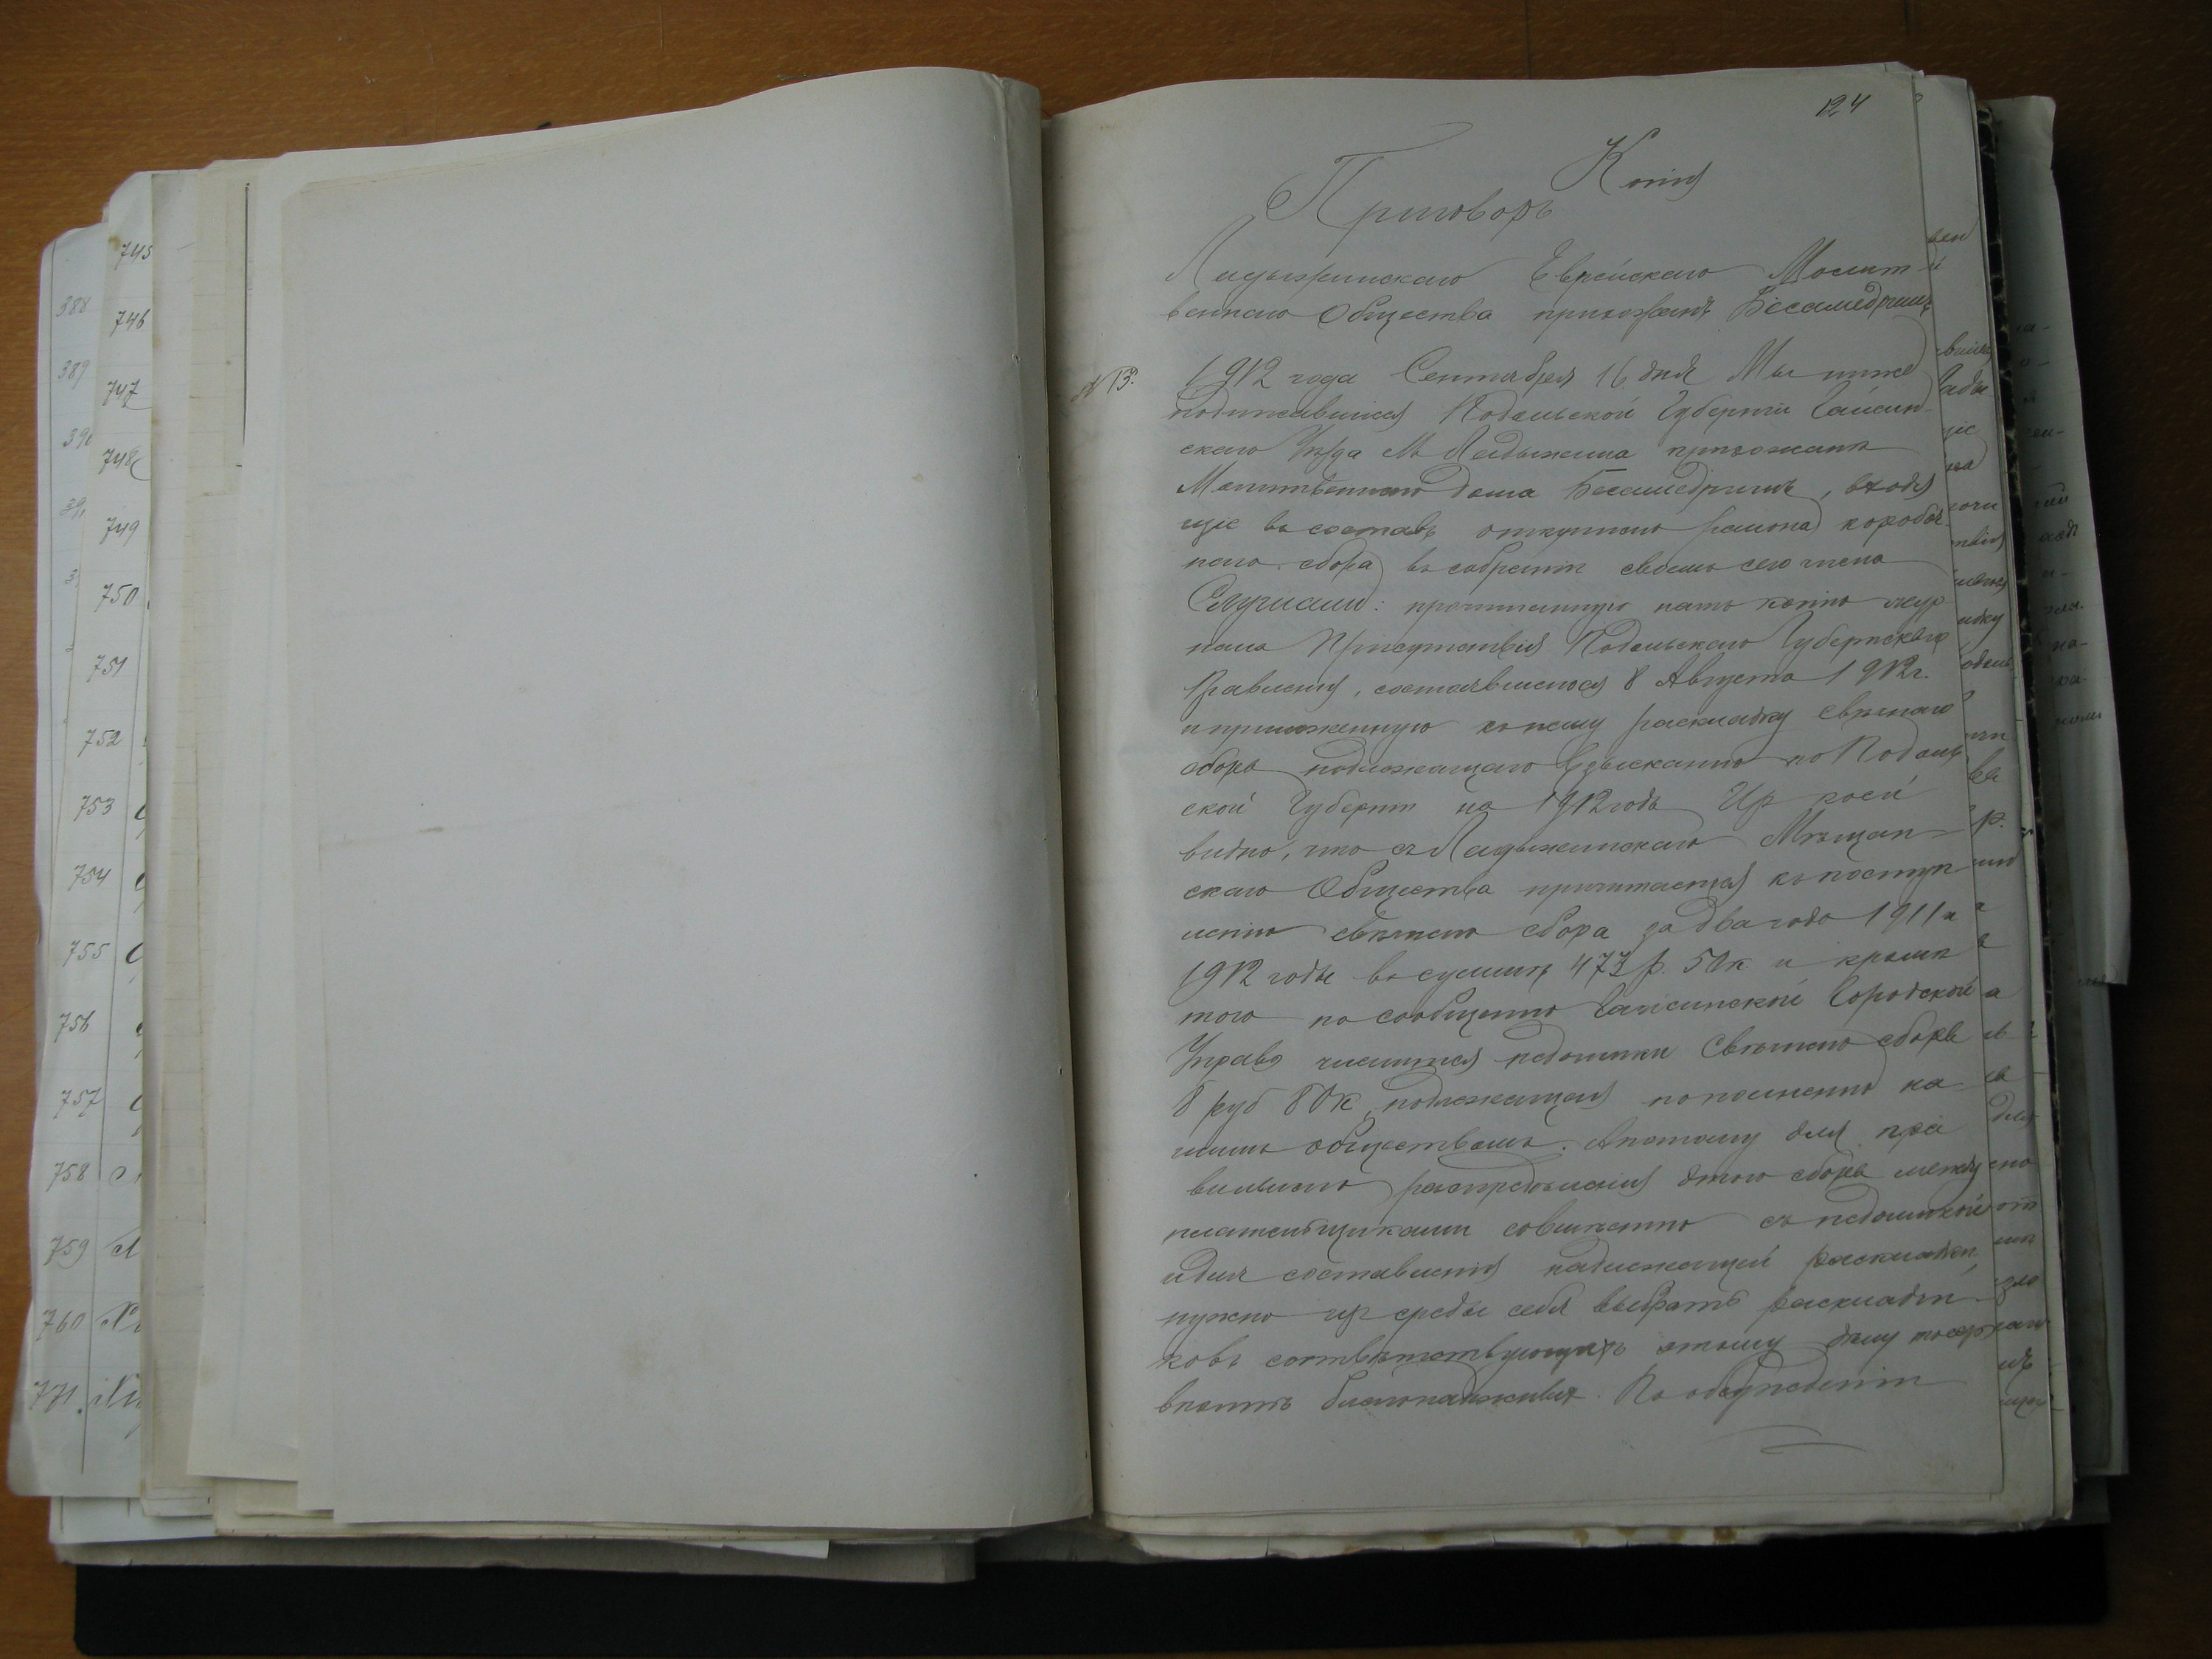 745
746
747
748
749
750
751
752
753
754
755
756
757
758
759
760
771.
388
389
124
Копія
Приговоръ
Ладыжинскаго Еврейскаго Молит
веннаго Общества прихожанъ Бесамедришъ
№ 13.
1912 года Сентября 16 дня Мы ниже
подписавшіеся Подольской Губерніи Гайсин-
скаго Уѣзда М Ладыжина прихожане
Молитвеннаго дома Бесамедришъ, входя
щіе въ составъ откупнаго района коробоч
наго сбора въ собраніи своемъ сего числа
Слушали: прочитанную намъ копію жур
нала Присутствія Подольскаго Губернскаго
Правленія, состоявшегося 8 Августа 1912 г.
и приложенную къ нему раскладку свѣчнаго
сбора подлежащаго взысканію по Подоль
ской Губерніи на 1912 годъ Изъ коей
видно, что съ Ладыжинскаго Мѣщан-
скаго Общества причитается къ поступ
ленію свѣчнаго сбора за два года 1911 и
1912 годы въ суммѣ 473 р. 50 к и кромѣ
того по сообщенію Гайсинской Городской
Управы числится недоимки Свѣчнаго сбора
8 руб 80 к, подлежащая пополненію на
шимъ обществомъ. А потому для пра
вильнаго распредѣленія этого сбора между
плательщиками совмѣстно съ недоимкой
и для составленія надлежащей раскладки,
нужно изъ среды себя выбрать раскладчи-
ковъ соотвѣтствующихъ этому дѣлу
вполнѣ благонадежныхъ. По обсужденіи